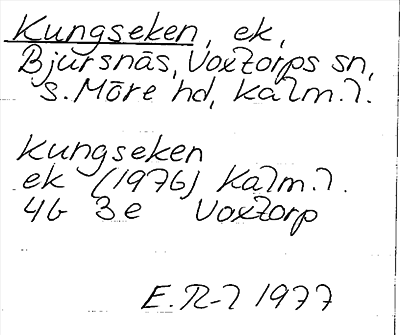 Kungseken, ek,
Bjursnäs, Voxtorps sn,
S. Möre hd, Kalm. l.
Kungseken
ek (1976) Kalm. l.
4G 3e Voxtorp
E. R-l 1977